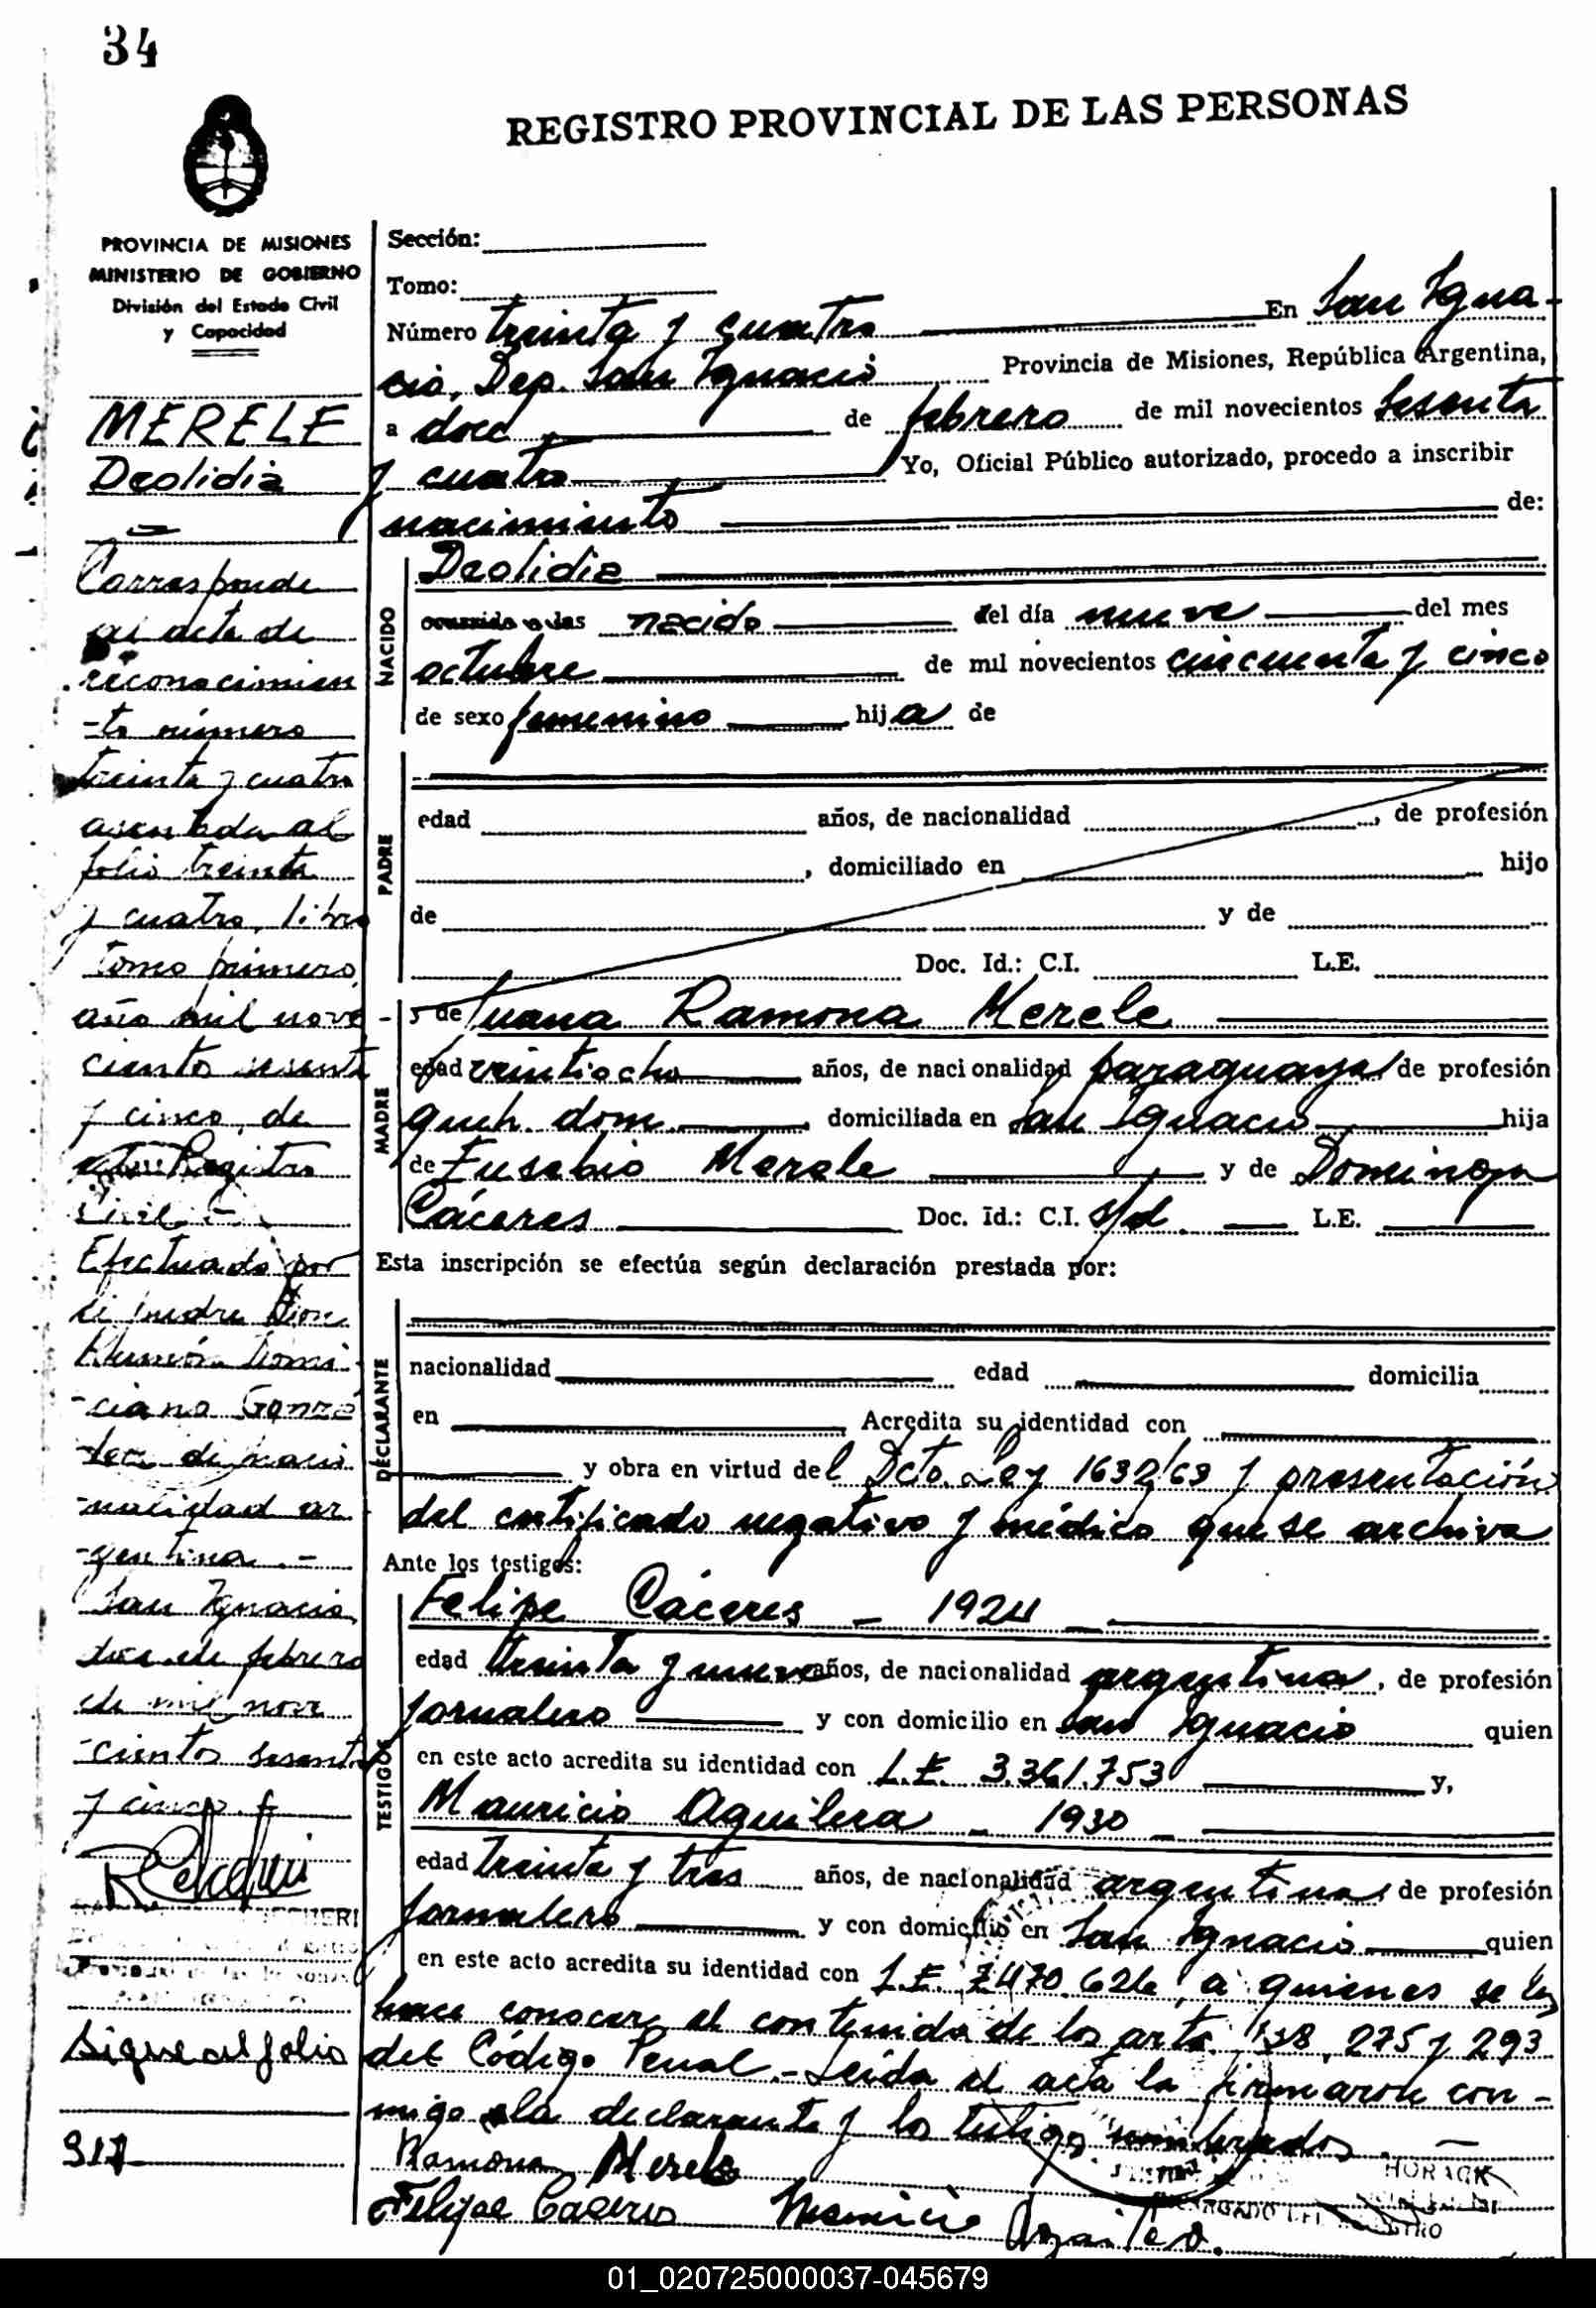 34
REGISTRO PROVINCIAL DE LAS PERSONAS
PROVINCIA DE MISIONES
MINISTERIO DE GOBIERNO
División del Estado Civil
y Capacidad
MERELE
Deolidia
Corresponde
al acta de
reconocimien
-to número
treinta y cuatro
asentada al
folio treinta
y cuatro, libro
Tomo primero,
año mil nove-
cientos sesenta
y cinco, de
este Registro
Civil.-
Efectuado por
su padre Don
Ramón Domi-
-ciano Gonzá
lez de nacio
-nalidad ar-
-gentina.-
San Ignacio,
doce de febrero
de mil nove
-cientos sesenta
y cinco.
Sigue al folio
317
Sección:
Tomo:
Número treinta y cuatro En San Igna-
cio, Dep. San Ignacio Provincia de Misiones, República Argentina,
a doce de febrero de mil novecientos sesenta
y cuatro Yo, Oficial Público autorizado, procedo a inscribir
nacimiento de:
NACIDO
Deolidia
ocurrido a las nacido del día nueve del mes
octubre de mil novecientos cincuenta y cinco
de sexo femenino hija de
PADRE
edad años, de nacionalidad , de profesión
, domiciliado en hijo
de y de
Doc. Id.: C.I. L.E.
MADRE
y de Juana Ramona Merele
edad veintiocho años, de nacionalidad paraguaya de profesión
queh. dom. domiciliada en San Ignacio hija
de Eusebio Merele y de Dominga
Cáceres Doc. Id.: C.I. s/d. L.E.
Esta inscripción se efectúa según declaración prestada por:
DECLARANTE
nacionalidad edad domicilia
en Acredita su identidad con
y obra en virtud del Dcto. Ley 1632/63 y presentación
del certificado negativo y médico que se archiva
Ante los testigos:
TESTIGOS
Felipe Cáceres - 1924
edad treinta y nueve años, de nacionalidad argentina, de profesión
jornalero y con domicilio en San Ignacio quien
en este acto acredita su identidad con L.E. 3.361.753 y,
Mauricio Aguilera - 1930
edad treinta y tres años, de nacionalidad argentina, de profesión
jornalero y con domicilio en San Ignacio quien
en este acto acredita su identidad con L.E. 7.470.626, a quienes se les
hace conocer el contenido de los arts. 138, 275 y 293
del Código Penal.- Leída el acta la firmaron con-
migo la declarante y los testigos nombrados.
Ramona Merele
Felipe Cáceres Mauricio
HORACK
01_020725000037-045679